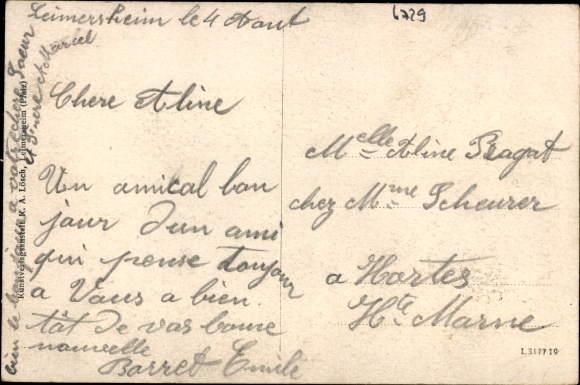 Leimersheim le 4 Aout
6729
Chere Aline
Un amical bon
jour d'un ami
qui pense toujour
a Vous a bien
tôt de vos bonne
nouvelle
Barret Emile
bien le bonjour a votre chere Soeur
et Pierre et Marcel
Kunstverlagsanstalt K. A. Lösch, Leimersheim (Pfalz)
Melle Aline Ragat
chez Mme Scheurer
a Hortes
Hte Marne
L 3177 19